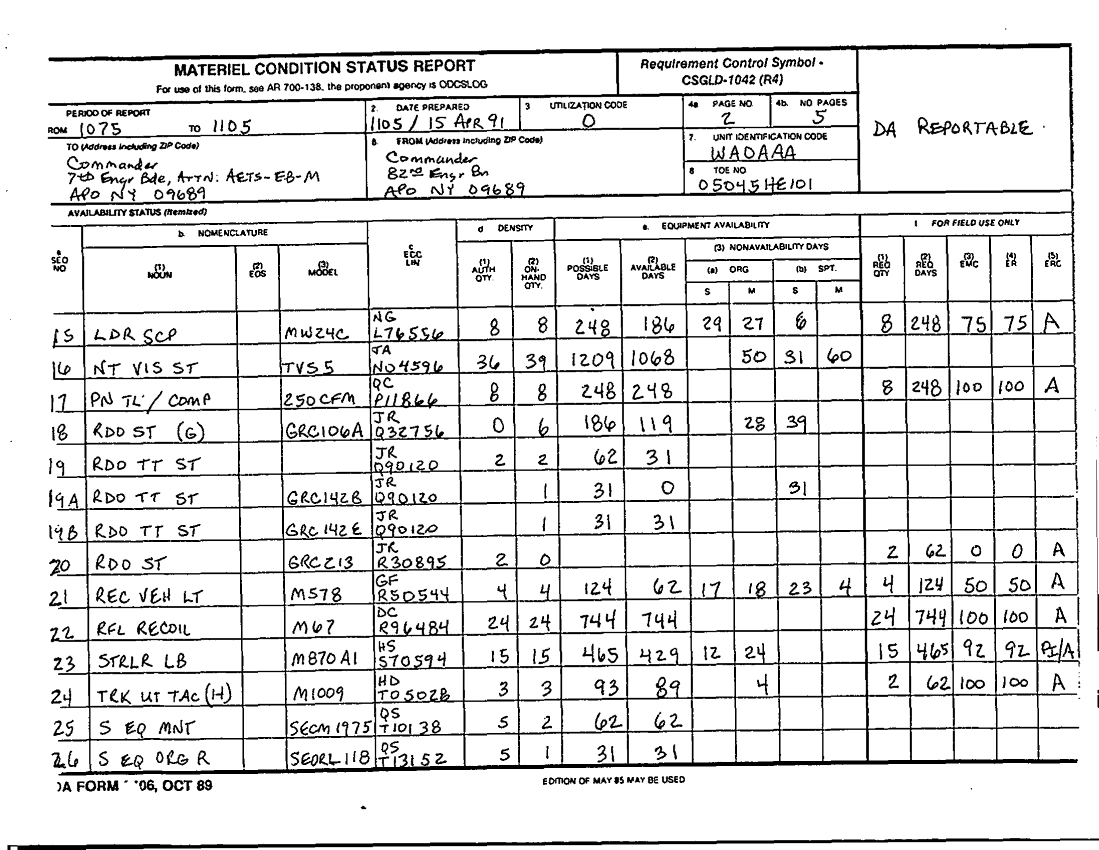 MATERIEL CONDITION STATUS REPORT
For use of this form, see AR 700-138, the proponent agency is ODCSLOG
Requirement Control Symbol -
CSGLD-1042 (R4)
PERIOD OF REPORT
ROM 1075 TO 1105
2. DATE PREPARED
1105 / 15 APR 91
3 UTILIZATION CODE
0
4a PAGE NO.
2
4b. NO PAGES
5
DA REPORTABLE
TO (Address including ZIP Code)
Commander
7th Engr Bde, ATTN: AETS-EB-M
APO NY 09689
6. FROM (Address including ZIP Code)
Commander
82nd Engr Bn
APO NY 09689
7. UNIT IDENTIFICATION CODE
WAOAAA
8 TOE NO
05045HE101
AVAILABILITY STATUS (Itemized)
a SEQ NO
b. NOMENCLATURE
(1) NOUN (2) EOS (3) MODEL
c ECC LIN
d DENSITY
(1) AUTH QTY. (2) ON-HAND QTY.
e. EQUIPMENT AVAILABILITY
(1) POSSIBLE DAYS (2) AVAILABLE DAYS
(3) NONAVAILABILITY DAYS
(a) ORG (b) SPT.
S M S M
f FOR FIELD USE ONLY
(1) REQ QTY (2) REQ DAYS (3) EMC (4) ER (5) ERC
15 LDR SCP MW24C NG L76556 8 8 248 186 29 27 6 8 248 75 75 A
16 NT VIS ST TVS5 JA N04596 36 39 1209 1068 50 31 60
17 PN TL / COMP 250CFM QC P11866 8 8 248 248 8 248 100 100 A
18 RDO ST (G) GRC106A JR Q32756 0 6 186 119 28 39
19 RDO TT ST JR Q90120 2 2 62 31
19A RDO TT ST GRC142B JR Q90120 1 31 0 31
19B RDO TT ST GRC142E JR Q90120 1 31 31
20 RDO ST GRC213 JR R30895 2 0 2 62 0 0 A
21 REC VEH LT M578 GF R50544 4 4 124 62 17 18 23 4 4 124 50 50 A
22 RFL RECOIL M67 DC R96484 24 24 744 744 24 744 100 100 A
23 STRLR LB M870A1 HS S70594 15 15 465 429 12 24 15 465 92 92 PI/A
24 TRK UT TAC (H) M1009 HD T05028 3 3 93 89 4 2 62 100 100 A
25 S EQ MNT SECM1975 QS T10138 5 2 62 62
26 S EQ ORG R SEORL118 QS T13152 5 1 31 31
DA FORM 06, OCT 89
EDITION OF MAY 85 MAY BE USED